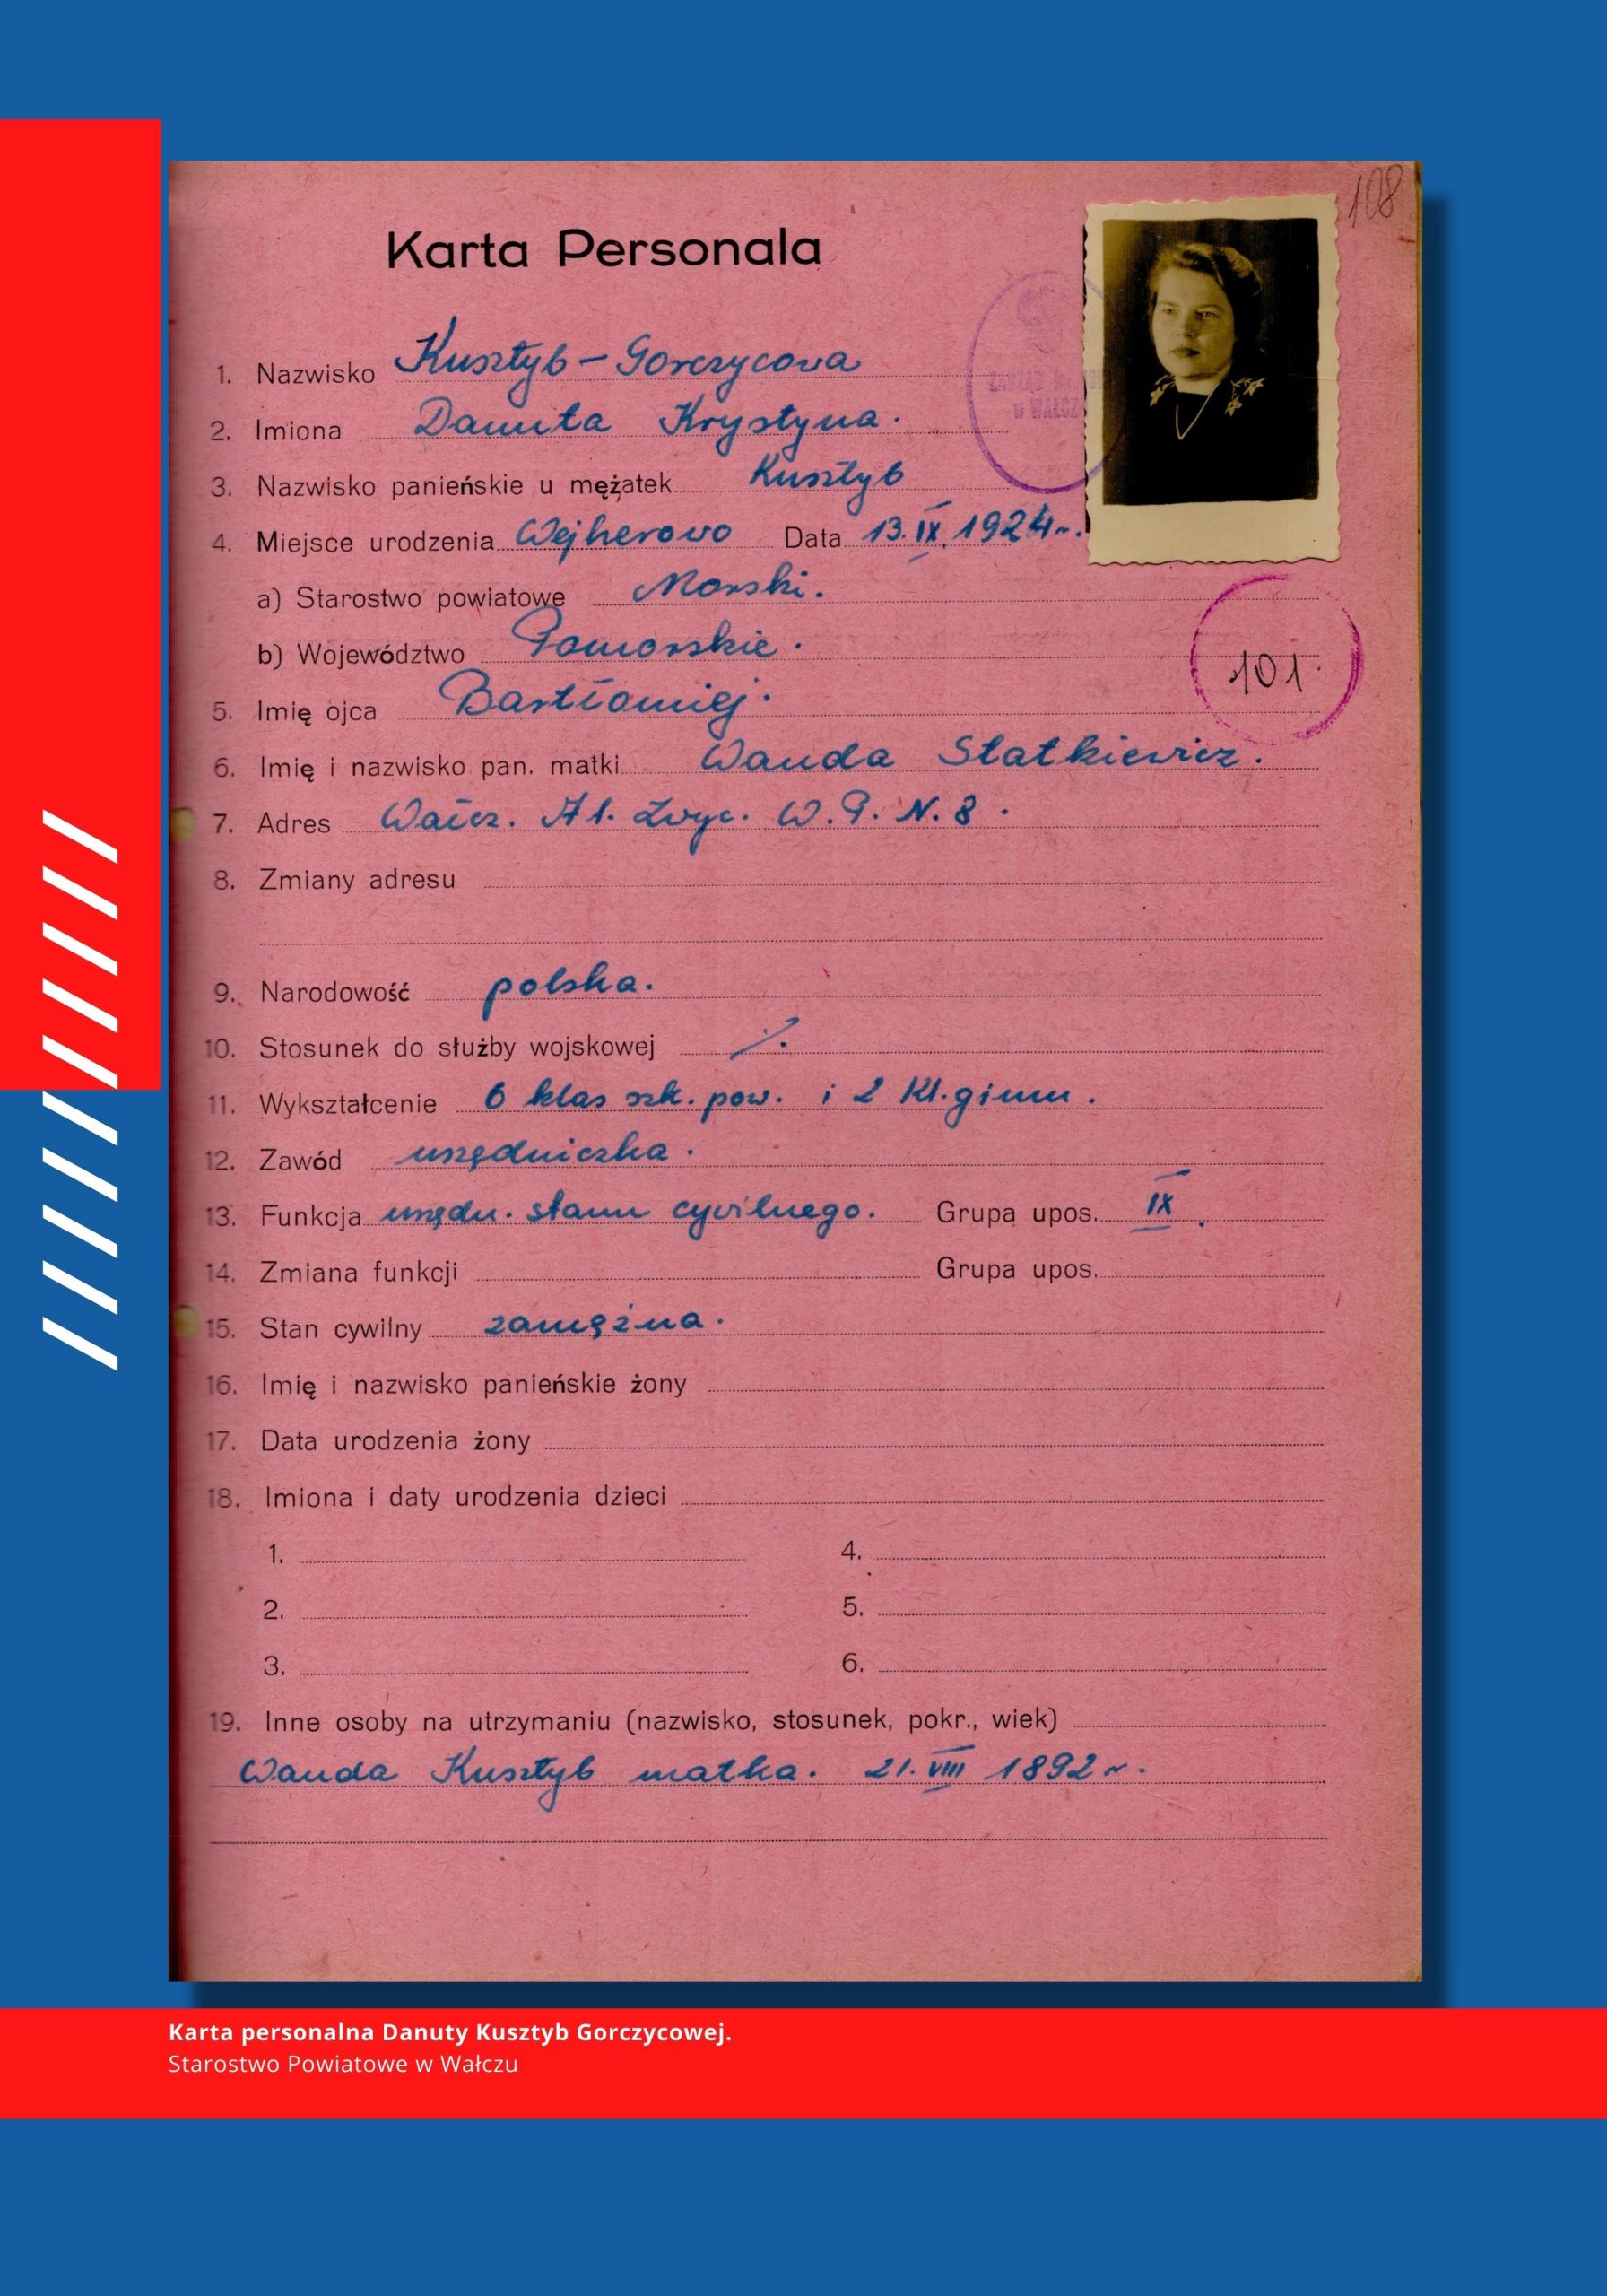 108
Karta Personala
1. Nazwisko Kusztyb – Gorczycowa
2. Imiona Danuta Krystyna.
3. Nazwisko panieńskie u mężatek Kusztyb
4. Miejsce urodzenia Wejherowo Data 13. IX. 1924 r.
a) Starostwo powiatowe Morski.
b) Województwo Pomorskie.
101.
5. Imię ojca Bartłomiej.
6. Imię i nazwisko pan. matki Wanda Statkiewicz.
7. Adres Wałcz. Al. Zwyc. W.P. N. 8.
8. Zmiany adresu
9. Narodowość polska.
10. Stosunek do służby wojskowej
11. Wykształcenie 6 klas szk. pow. i 2 Kl. gimn.
12. Zawód urzędniczka.
13. Funkcja urzędn. stanu cywilnego. Grupa upos. IX.
14. Zmiana funkcji Grupa upos.
15. Stan cywilny zamężna.
16. Imię i nazwisko panieńskie żony
17. Data urodzenia żony
18. Imiona i daty urodzenia dzieci
1. 4.
2. 5.
3. 6.
19. Inne osoby na utrzymaniu (nazwisko, stosunek, pokr., wiek)
Wanda Kusztyb matka. 21. VIII 1892 r.
Karta personalna Danuty Kusztyb Gorczycowej.
Starostwo Powiatowe w Wałczu